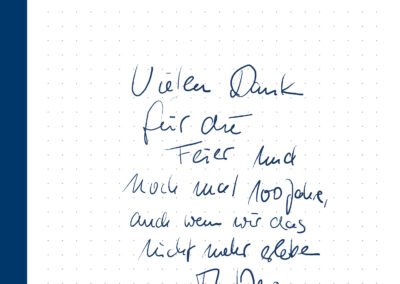 Vielen Dank
für die
Feier und
noch mal 100 Jahre,
auch wenn wir das
nicht mehr erleben